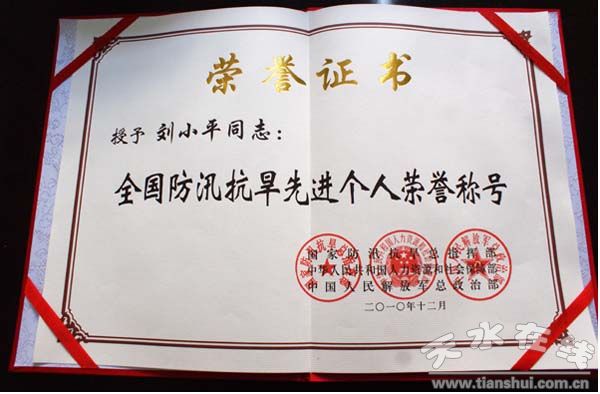 荣誉证书
授予 刘小平同志：
全国防汛抗旱先进个人荣誉称号
国家防汛抗旱总指挥部
中华人民共和国人力资源和社会保障部
中国人民解放军总政治部
二〇一〇年十二月
天水在线
www.tianshui.com.cn